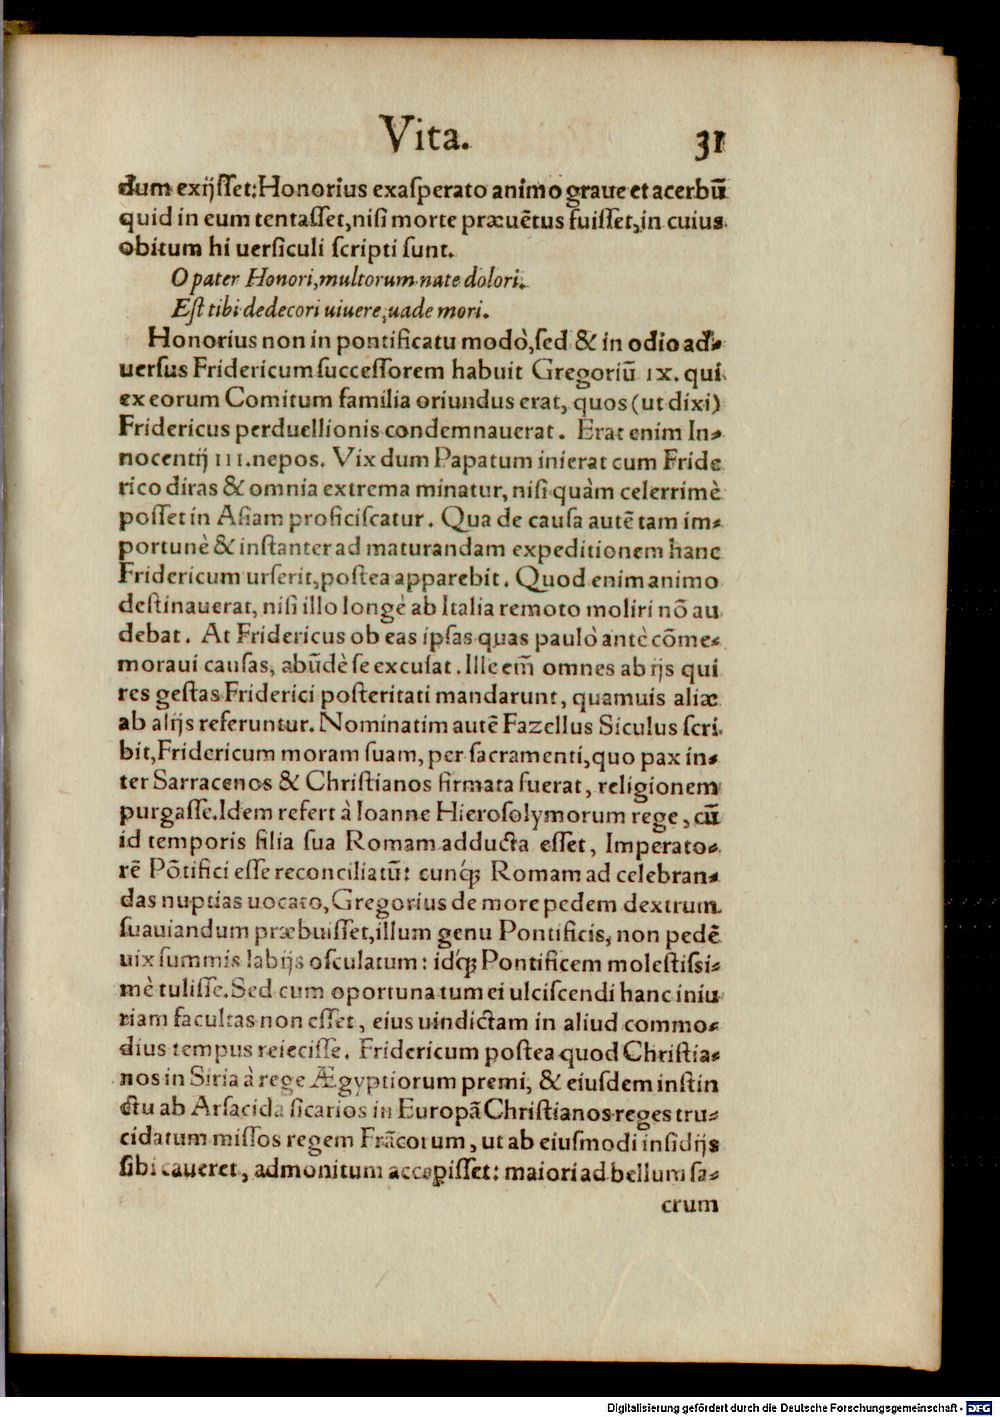 Vita. 31
dum exijsset: Honorius exasperato animo graue et acerbū
quid in eum tentasset, nisi morte præuētus fuisset, in cuius
obitum hi uersiculi scripti sunt.
O pater Honori, multorum nate dolori.
Est tibi dedecori uiuere, uade mori.
Honorius non in pontificatu modò, sed & in odio ad-
uersus Fridericum successorem habuit Gregoriū IX. qui
ex eorum Comitum familia oriundus erat, quos (ut dixi)
Fridericus perduellionis condemnauerat. Erat enim In-
nocentij III. nepos. Vix dum Papatum inierat cum Fride
rico diras & omnia extrema minatur, nisi quàm celerrimè
posset in Asiam proficiscatur. Qua de causa autē tam im-
portunè & instanter ad maturandam expeditionem hanc
Fridericum urserit, postea apparebit. Quod enim animo
destinauerat, nisi illo longè ab Italia remoto moliri nō au
debat. At Fridericus ob eas ipsas quas paulò antè cōme-
moraui causas, abūdè se excusat. Ille em̄ omnes ab ijs qui
res gestas Friderici posteritati mandarunt, quamuis aliæ
ab alijs referuntur. Nominatim autē Fazellus Siculus scri
bit, Fridericum moram suam, per sacramenti, quo pax in-
ter Sarracenos & Christianos firmata fuerat, religionem
purgasse. Idem refert à Ioanne Hierosolymorum rege, cū
id temporis filia sua Romam adducta esset, Imperato-
rē Pōtifici esse reconciliatū: cunq́; Romam ad celebran-
das nuptias uocato, Gregorius de more pedem dextrum
suauiandum præbuisset, illum genu Pontificis, non pedē
uix summis labijs osculatum: idq́; Pontificem molestissi-
mè tulisse. Sed cum oportuna tum ei ulciscendi hanc iniu
riam facultas non esset, eius uindictam in aliud commo-
dius tempus reiecisse. Fridericum postea quod Christia-
nos in Siria à rege Ægyptiorum premi, & eiusdem instin
ctu ab Arsacida sicarios in Europā Christianos reges tru-
cidatum missos regem Frācorum, ut ab eiusmodi insidijs
sibi caueret, admonitum accepisset: maiori ad bellum sa-
crum
Digitalisierung gefördert durch die Deutsche Forschungsgemeinschaft - DFG